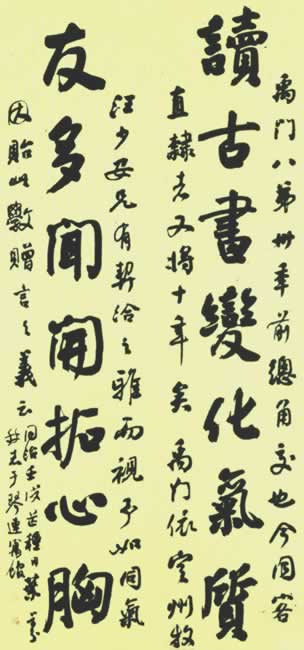 禹門八弟卅年前總角交也今同客
讀古書變化氣質
直隸者又將十年矣禹門依定州牧
汪少安兄有契洽之雅而視予如同氣
友多聞開拓心胸
因貽此贈言之義云
同治壬戌芒種日葉